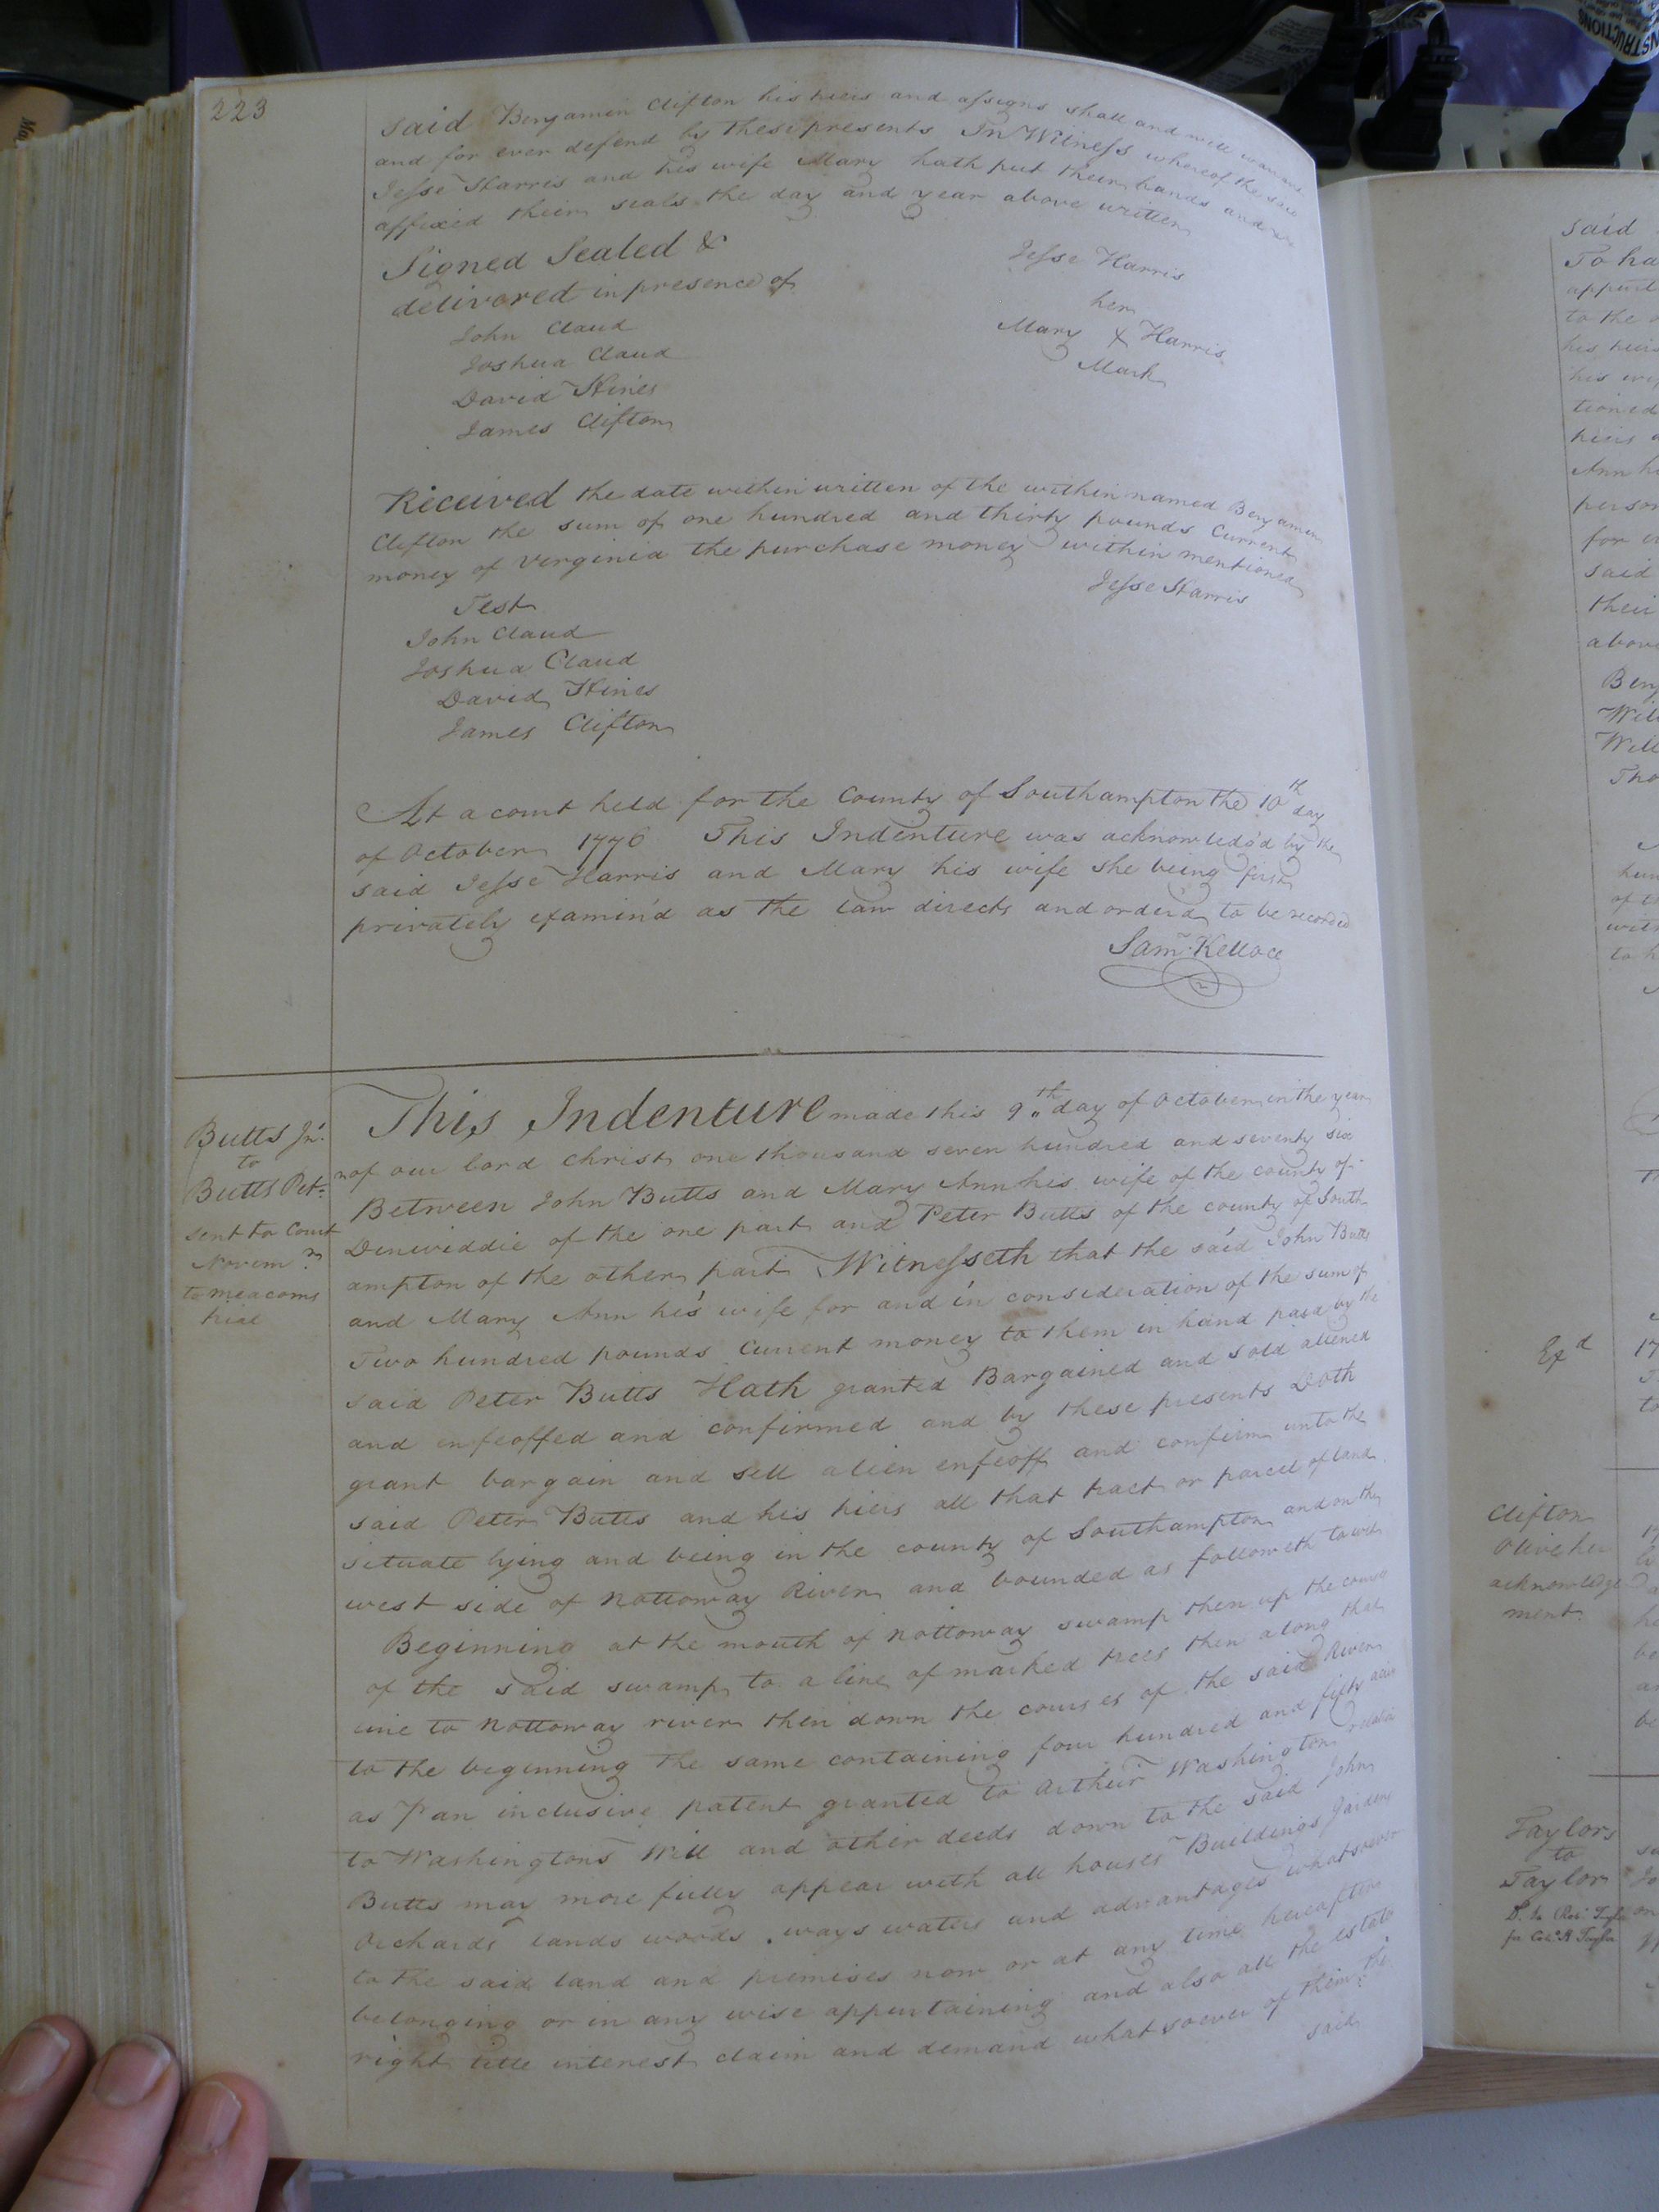 223
said Benjamin Clifton his heirs and assigns shall and will warrant
and for ever defend by these presents In Witness whereof the said
Jesse Harris and his wife Mary hath put their hands and
affixed their seals the day and year above written
Signed Sealed &
delivered in presence of
John Claud
Joshua Claud
David Hines
James Clifton
Jesse Harris
her
Mary X Harris
Mark
Received the date within written of the within named Benjamin
Clifton the sum of one hundred and thirty pounds Current
money of Virginia the purchase money within mentioned
Jesse Harris
Test
John Claud
Joshua Claud
David Hines
James Clifton
At a court held for the County of Southampton the 10th day
of October 1776 This Indenture was acknowledd by the
said Jesse Harris and Mary his wife she being first
privately examin'd as the law directs and orderd to be recorded
Sam. Kelloce
Butts Jn.
to
Butts Pet.
sent for Court
Novem
to meacoms
trial
This Indenture made this 9th day of October in the year
of our lord Christ one thousand seven hundred and seventy six
Between John Butts and Mary Ann his wife of the county of
Dinwiddie of the one part and Peter Butts of the county of South
ampton of the other part Witnesseth that the said John Butts
and Mary Ann his wife for and in consideration of the sum of
Two hundred pounds Current money to them in hand paid by the
said Peter Butts Hath granted Bargained and sold aliened
and enfeoffed and confirmed and by these presents Doth
grant bargain and sell alien enfeoff and confirm unto the
said Peter Butts and his heirs all that tract or parcel of land
situate lying and being in the county of Southampton and on the
west side of Nottoway River and bounded as followeth to wit
Beginning at the mouth of Nottoway swamp then up the course
of the said swamp to a line of marked trees then along that
line to Nottoway river then down the courses of the said River
to the beginning the same containing four hundred and fifty acres
as P an inclusive patent granted to Arthur Washington relation
to Washingtons Will and other deeds down to the said John
Butts may more fully appear with all houses Buildings Gardens
Orchards lands woods ways waters and advantages whatsoever
to the said land and premises now or at any time hereafter
belonging or in any wise appurtaining and also all the estate
right title interest claim and demand whatsoever of them the
said
said
To ha
appurt
to the
his heirs
his wi
tioned
heirs
Ann h
person
for
said
their
above
Benj
Will
Will
Tho
hun
of th
with
to h
Exd
17
to
Clifton
Olive her
acknowledge
ment
Taylors
to
Taylor
INSTRUCTIONS